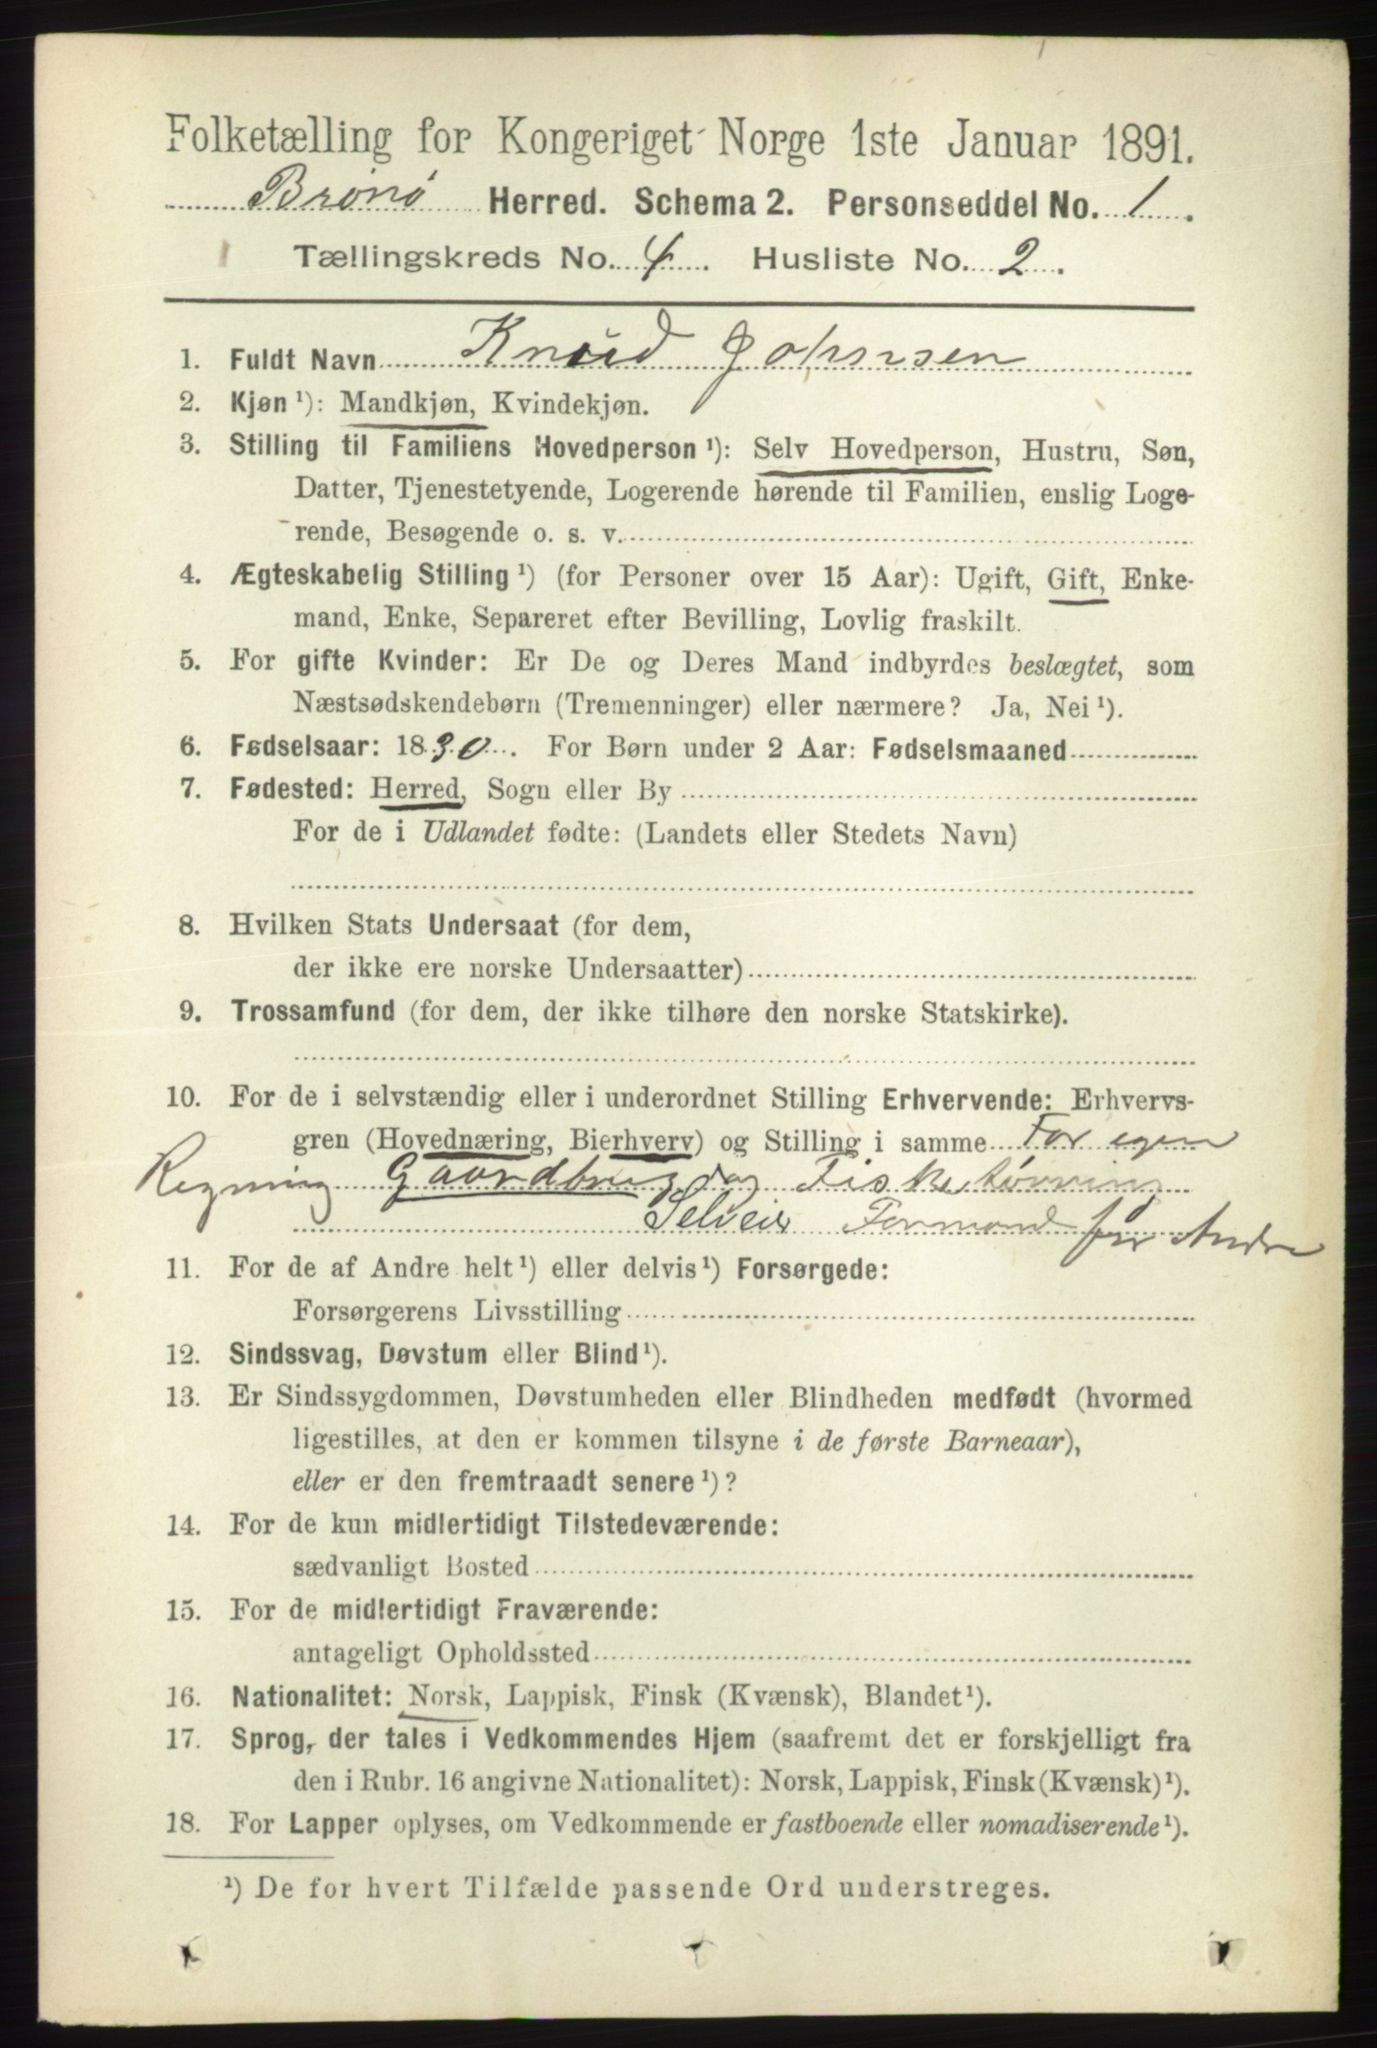 Folketælling for Kongeriget Norge 1ste Januar 1891.
Brønø Herred. Schema 2. Personseddel No. 1.
Tællingskreds No. 4. Husliste No. 2.
1. Fuldt Navn Knud Johnsen
2. Kjøn ¹): Mandkjøn, Kvindekjøn.
3. Stilling til Familiens Hovedperson ¹): Selv Hovedperson, Hustru, Søn,
Datter, Tjenestetyende, Logerende hørende til Familien, enslig Loge-
rende, Besøgende o. s. v.
4. Ægteskabelig Stilling ¹) (for Personer over 15 Aar): Ugift, Gift, Enke-
mand, Enke, Separeret efter Bevilling, Lovlig fraskilt.
5. For gifte Kvinder: Er De og Deres Mand indbyrdes beslægtet, som
Næstsødskendebørn (Tremenninger) eller nærmere? Ja, Nei ¹).
6. Fødselsaar: 1830. For Børn under 2 Aar: Fødselsmaaned
7. Fødested: Herred, Sogn eller By
For de i Udlandet fødte: (Landets eller Stedets Navn)
8. Hvilken Stats Undersaat (for dem,
der ikke ere norske Undersaatter)
9. Trossamfund (for dem, der ikke tilhøre den norske Statskirke).
10. For de i selvstændig eller i underordnet Stilling Erhvervende: Erhvervs-
gren (Hovednæring, Bierhverv) og Stilling i samme For egen
Regning Gaardbrug og Fiske
Selveier Formand for Andre
11. For de af Andre helt ¹) eller delvis ¹) Forsørgede:
Forsørgerens Livsstilling
12. Sindssvag, Døvstum eller Blind ¹).
13. Er Sindssygdommen, Døvstumheden eller Blindheden medfødt (hvormed
ligestilles, at den er kommen tilsyne i de første Barneaar),
eller er den fremtraadt senere ¹)?
14. For de kun midlertidigt Tilstedeværende:
sædvanligt Bosted
15. For de midlertidigt Fraværende:
antageligt Opholdssted
16. Nationalitet: Norsk, Lappisk, Finsk (Kvænsk), Blandet ¹).
17. Sprog, der tales i Vedkommendes Hjem (saafremt det er forskjelligt fra
den i Rubr. 16 angivne Nationalitet): Norsk, Lappisk, Finsk (Kvænsk) ¹).
18. For Lapper oplyses, om Vedkommende er fastboende eller nomadiserende ¹).
¹) De for hvert Tilfælde passende Ord understreges.